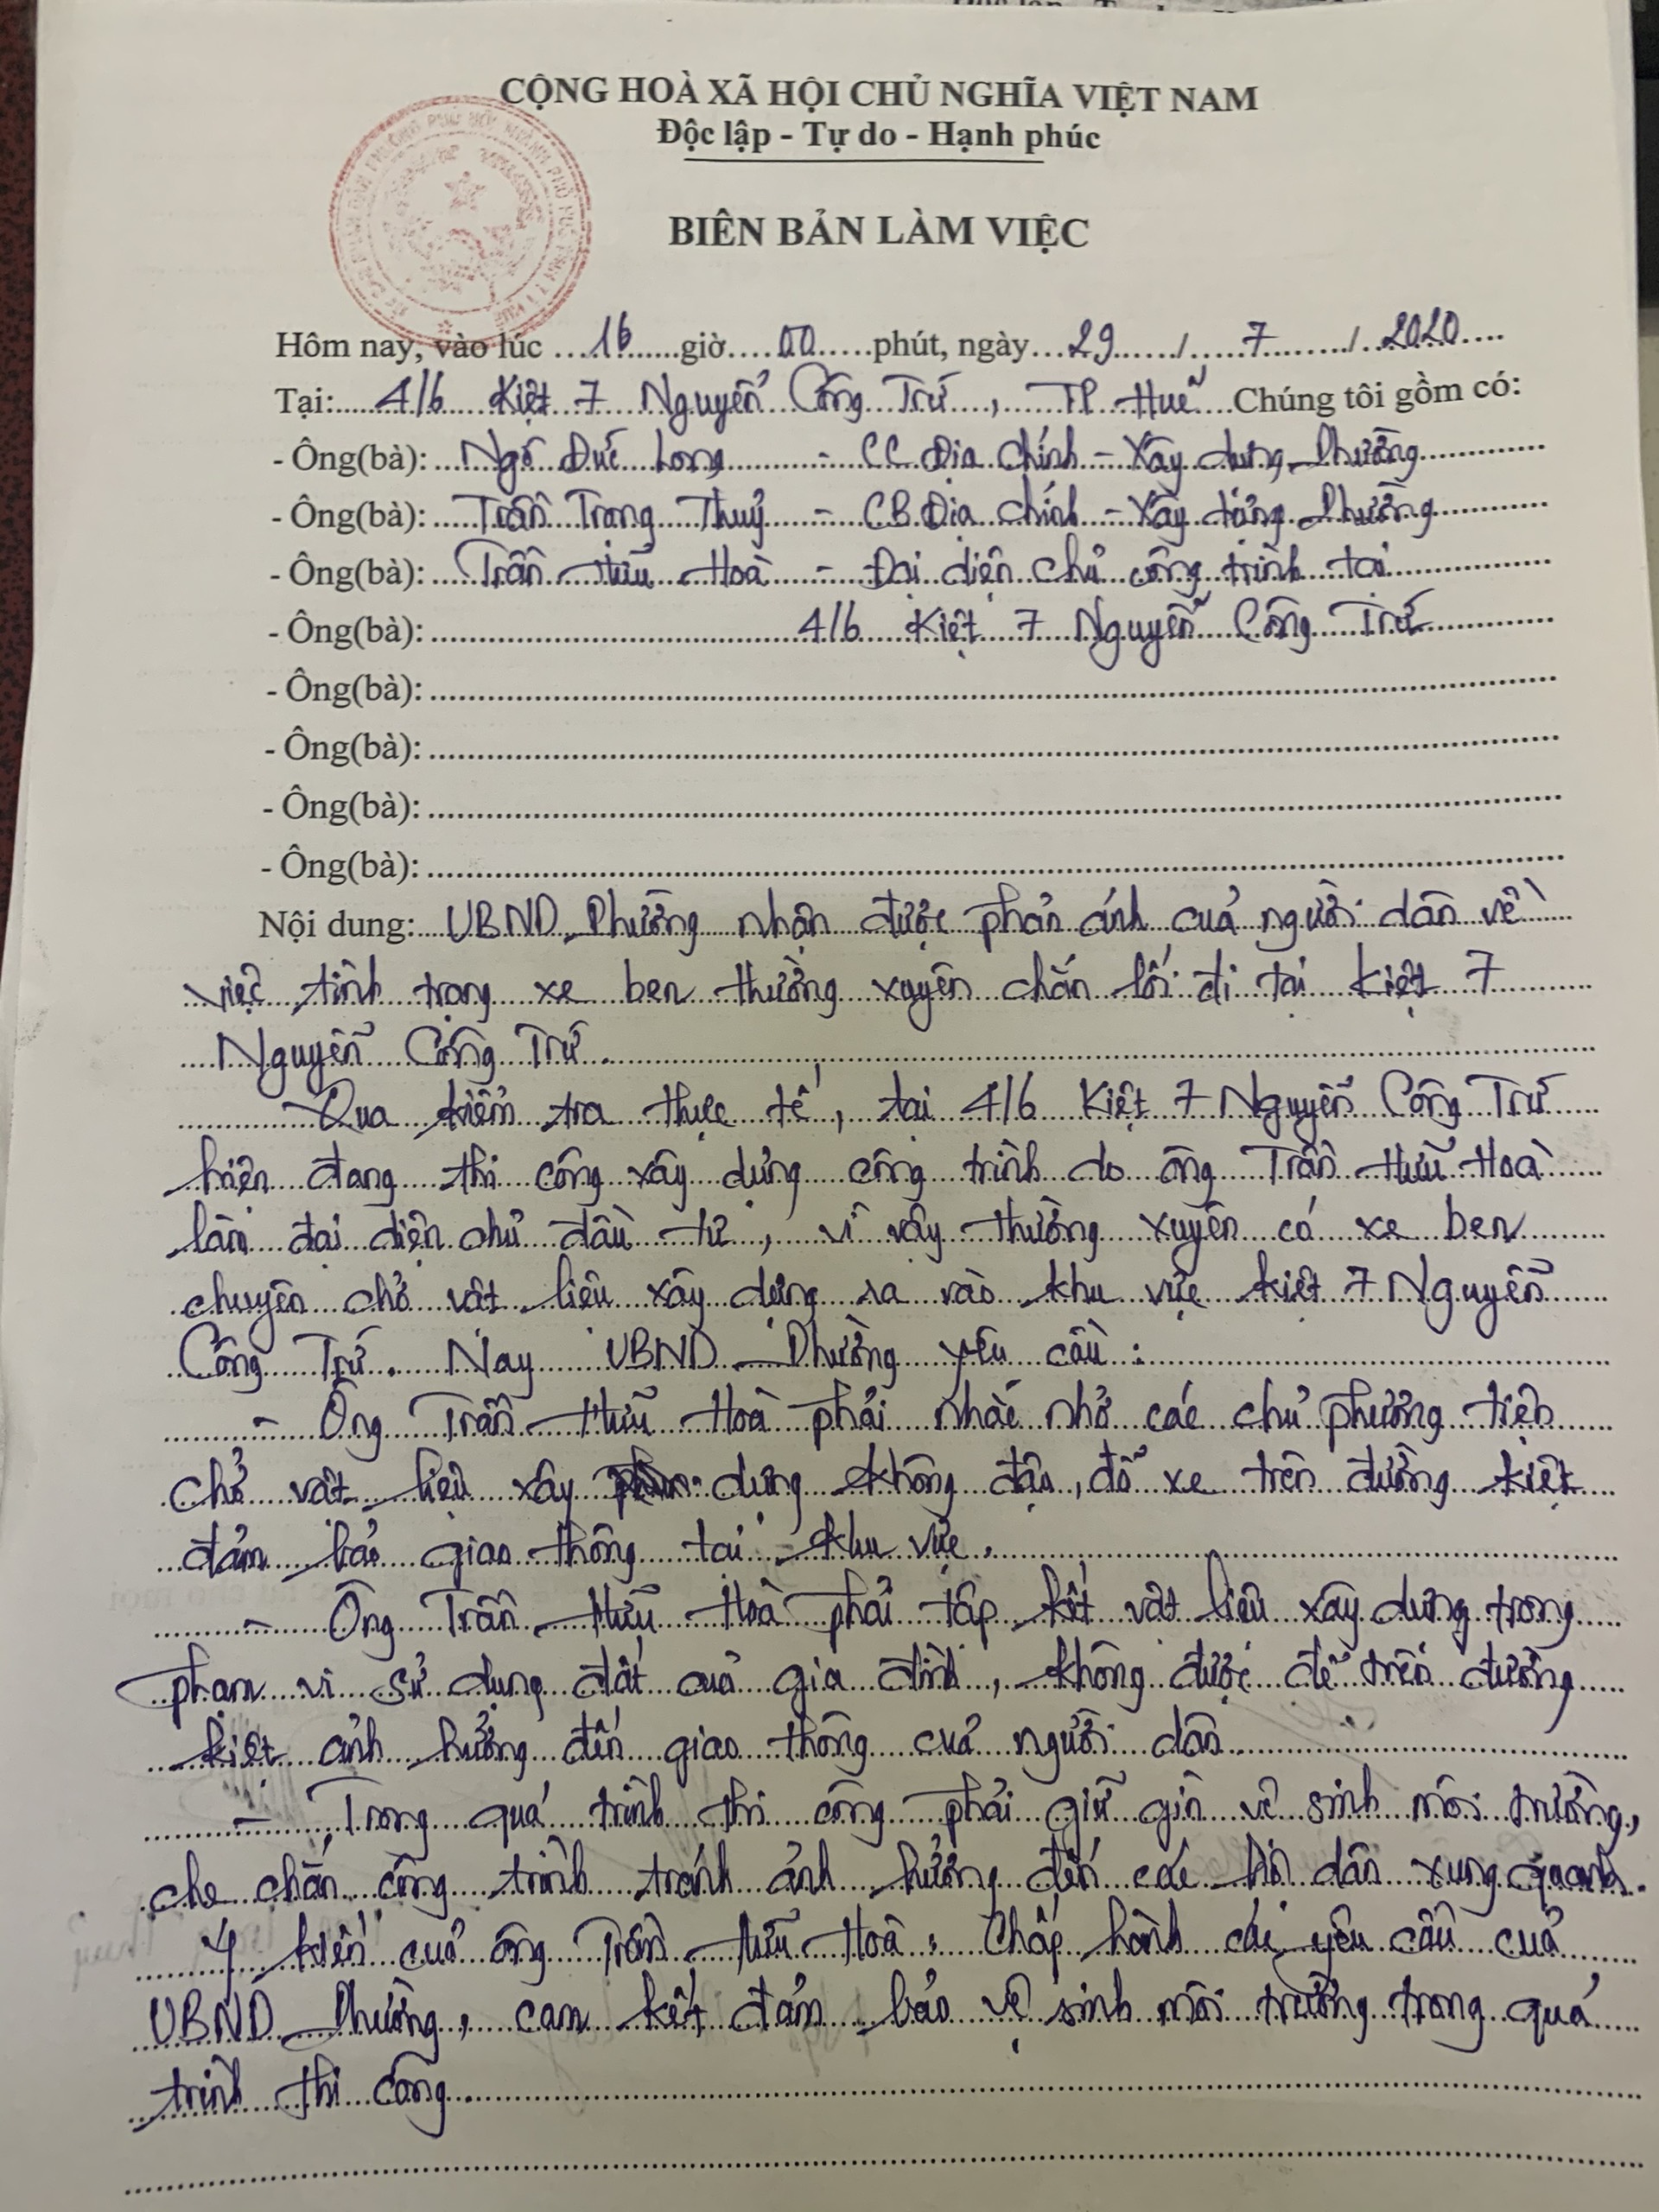 CỘNG HOÀ XÃ HỘI CHỦ NGHĨA VIỆT NAM
Độc lập - Tự do - Hạnh phúc
BIÊN BẢN LÀM VIỆC
Hôm nay, vào lúc 16 giờ 00 phút, ngày 29 / 7 / 2020
Tại: 4/6 Kiệt 7 Nguyễn Công Trứ, TP Huế Chúng tôi gồm có:
- Ông(bà): Ngô Đức Long - CC Địa chính - Xây dựng Phường
- Ông(bà): Trần Trọng Thuỷ - CB Địa chính - Xây dựng Phường
- Ông(bà): Trần Hữu Hoà - Đại diện chủ công trình tại
- Ông(bà): 4/6 Kiệt 7 Nguyễn Công Trứ
- Ông(bà):
- Ông(bà):
- Ông(bà):
- Ông(bà):
Nội dung: UBND Phường nhận được phản ánh của người dân về
việc tình trạng xe ben thường xuyên chắn lối đi tại kiệt 7
Nguyễn Công Trứ.
Qua kiểm tra thực tế, tại 4/6 Kiệt 7 Nguyễn Công Trứ
hiện đang thi công xây dựng công trình do ông Trần Hữu Hoà
làm đại diện chủ đầu tư, vì vậy thường xuyên có xe ben
chuyên chở vật liệu xây dựng ra vào khu vực kiệt 7 Nguyễn
Công Trứ. Nay UBND Phường yêu cầu:
- Ông Trần Hữu Hoà phải nhắc nhở các chủ phương tiện
chở vật liệu xây dựng không đậu, đỗ xe trên đường kiệt
đảm bảo giao thông tại khu vực.
- Ông Trần Hữu Hoà phải tập kết vật liệu xây dựng trong
phạm vi sử dụng đất của gia đình, không được để trên đường
kiệt ảnh hưởng đến giao thông của người dân
- Trong quá trình thi công phải giữ gìn vệ sinh môi trường,
che chắn công trình tránh ảnh hưởng đến các hộ dân xung quanh.
Ý kiến của ông Trần Hữu Hoà: Chấp hành các yêu cầu của
UBND Phường, cam kết đảm bảo vệ sinh môi trường trong quá
trình thi công